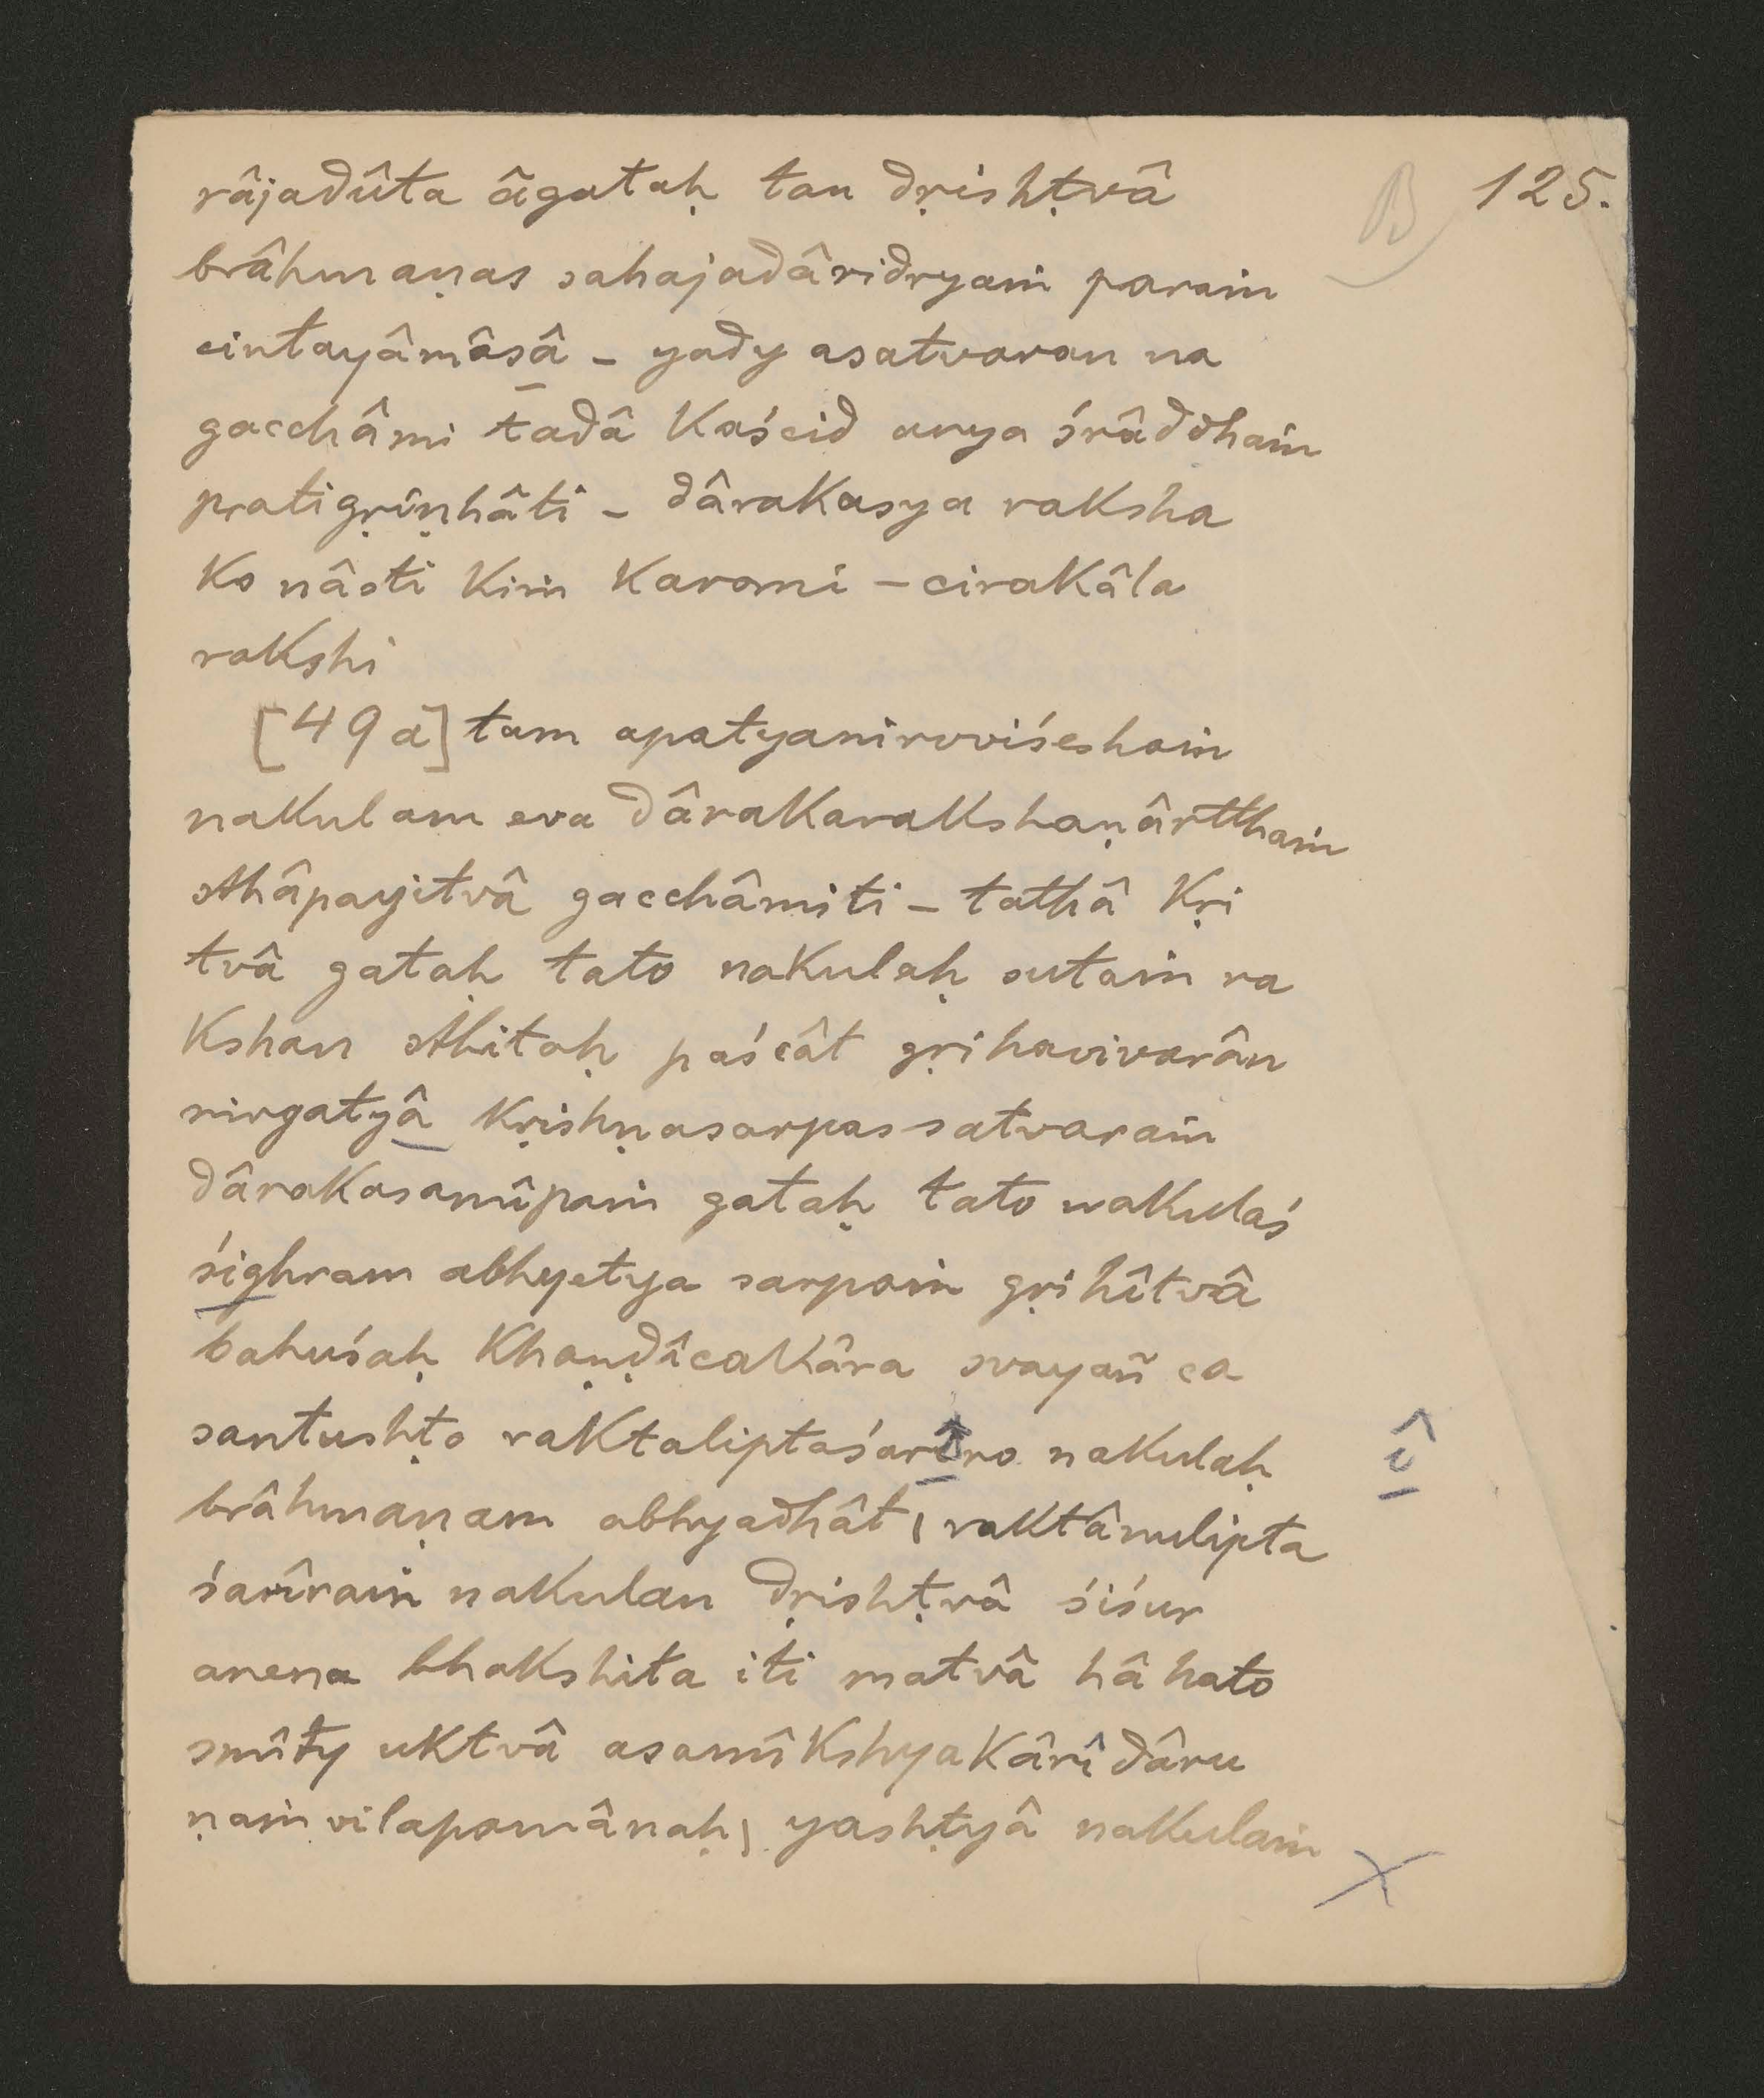 B 125.
râjadûta âgataḥ tan dṛishṭvâ
brâhmaṇas sahajadâridryaṁ paraṁ
cintayâmâsâ – yady asatvaran na
gacchâmi tadâ kaścid anya śrâddhaṁ
pratigṛîṇhâti – dârakasya raksha
ko nâsti kiṁ karomi – cirakâla
rakshi
[49a] tam apatyanirvviśeshaṁ
nakulam eva dârakarakshaṇârtthaṁ
sthâpayitvâ gacchâmiti – tathâ kṛi
tvâ gataḥ tato nakulaḥ sutaṁ ra
kshan sthitaḥ paścât gṛihavivarân
nirgatyâ kṛishṇasarpas satvaraṁ
dârakasamîpaṁ gataḥ tato nakulaś
śighram abhyetya sarpaṁ gṛihîtvâ
bahuśaḥ khaṇḍîcakâra svayañ ca
santushṭo raktaliptaśarîro nakulaḥ î
brâhmaṇam abhyadhât | raktânulipta
śarîraṁ nakulan dṛishṭvâ śiśur
anena bhakshita iti matvâ hâ hato
smîty uktvâ asamîkshyakârî dâru
ṇaṁ vilapamânaḥ | yashṭyâ nakulaṁ